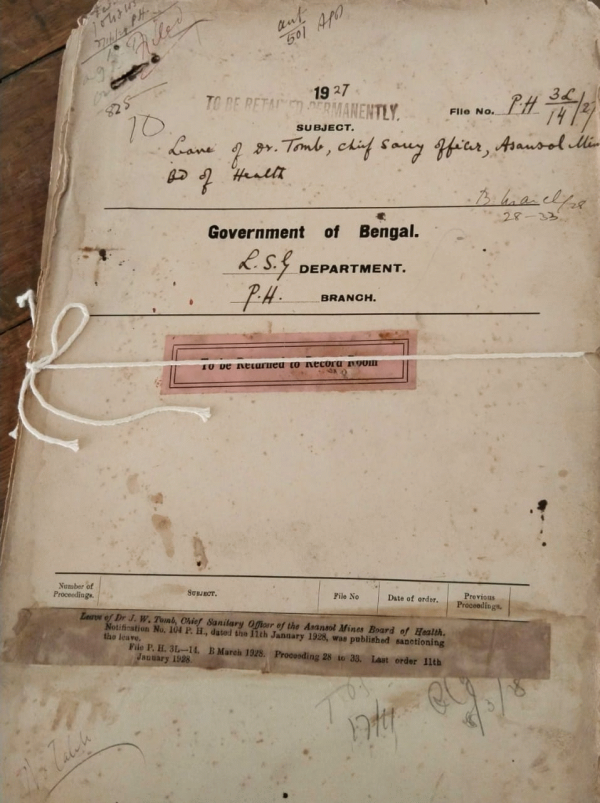 Filed
825
10
501
1927
TO BE RETAINED PERMANENTLY.
File No. P.H 3L/14/27
SUBJECT.
Leave of Dr. Tomb, Chief Sany officer, Asansol Mines
Bd of Health
B. March/28
28-33
Government of Bengal.
L.S.G DEPARTMENT.
P.H. BRANCH.
To be Returned to Record Room
Number of Proceedings. SUBJECT. File No Date of order. Previous Proceedings.
Leave of Dr J. W. Tomb, Chief Sanitary Officer of the Asansol Mines Board of Health.
Notification No. 104 P. H., dated the 11th January 1928, was published sanctioning
the leave.
File P. H. 3L—14. B March 1928. Proceeding 28 to 33. Last order 11th
January 1928.
17/4
8/3/8